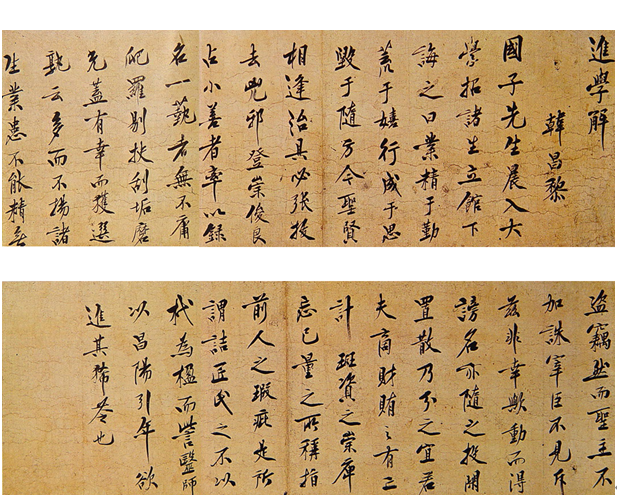 進學解
韓昌黎
國子先生晨入大
學招諸生立館下
誨之曰業精于勤
荒于嬉行成于思
毀于隨方今聖賢
相逢治具必張拔
去兇邪登崇俊良
占小善者率以錄
名一藝者無不庸
爬羅剔抉刮垢磨
光蓋有幸而獲選
孰云多而不揚諸
生業患不能精無
盜竊然而聖主不
加誅宰臣不見斥
茲非幸歟動而得
謗名亦隨之投閑
置散乃分之宜若
夫商財賄之有亡
計班資之崇庳
忘己量之所稱指
前人之瑕疵是所
謂詰匠氏之不以
杙為楹而訾醫師
以昌陽引年欲
進其豨苓也